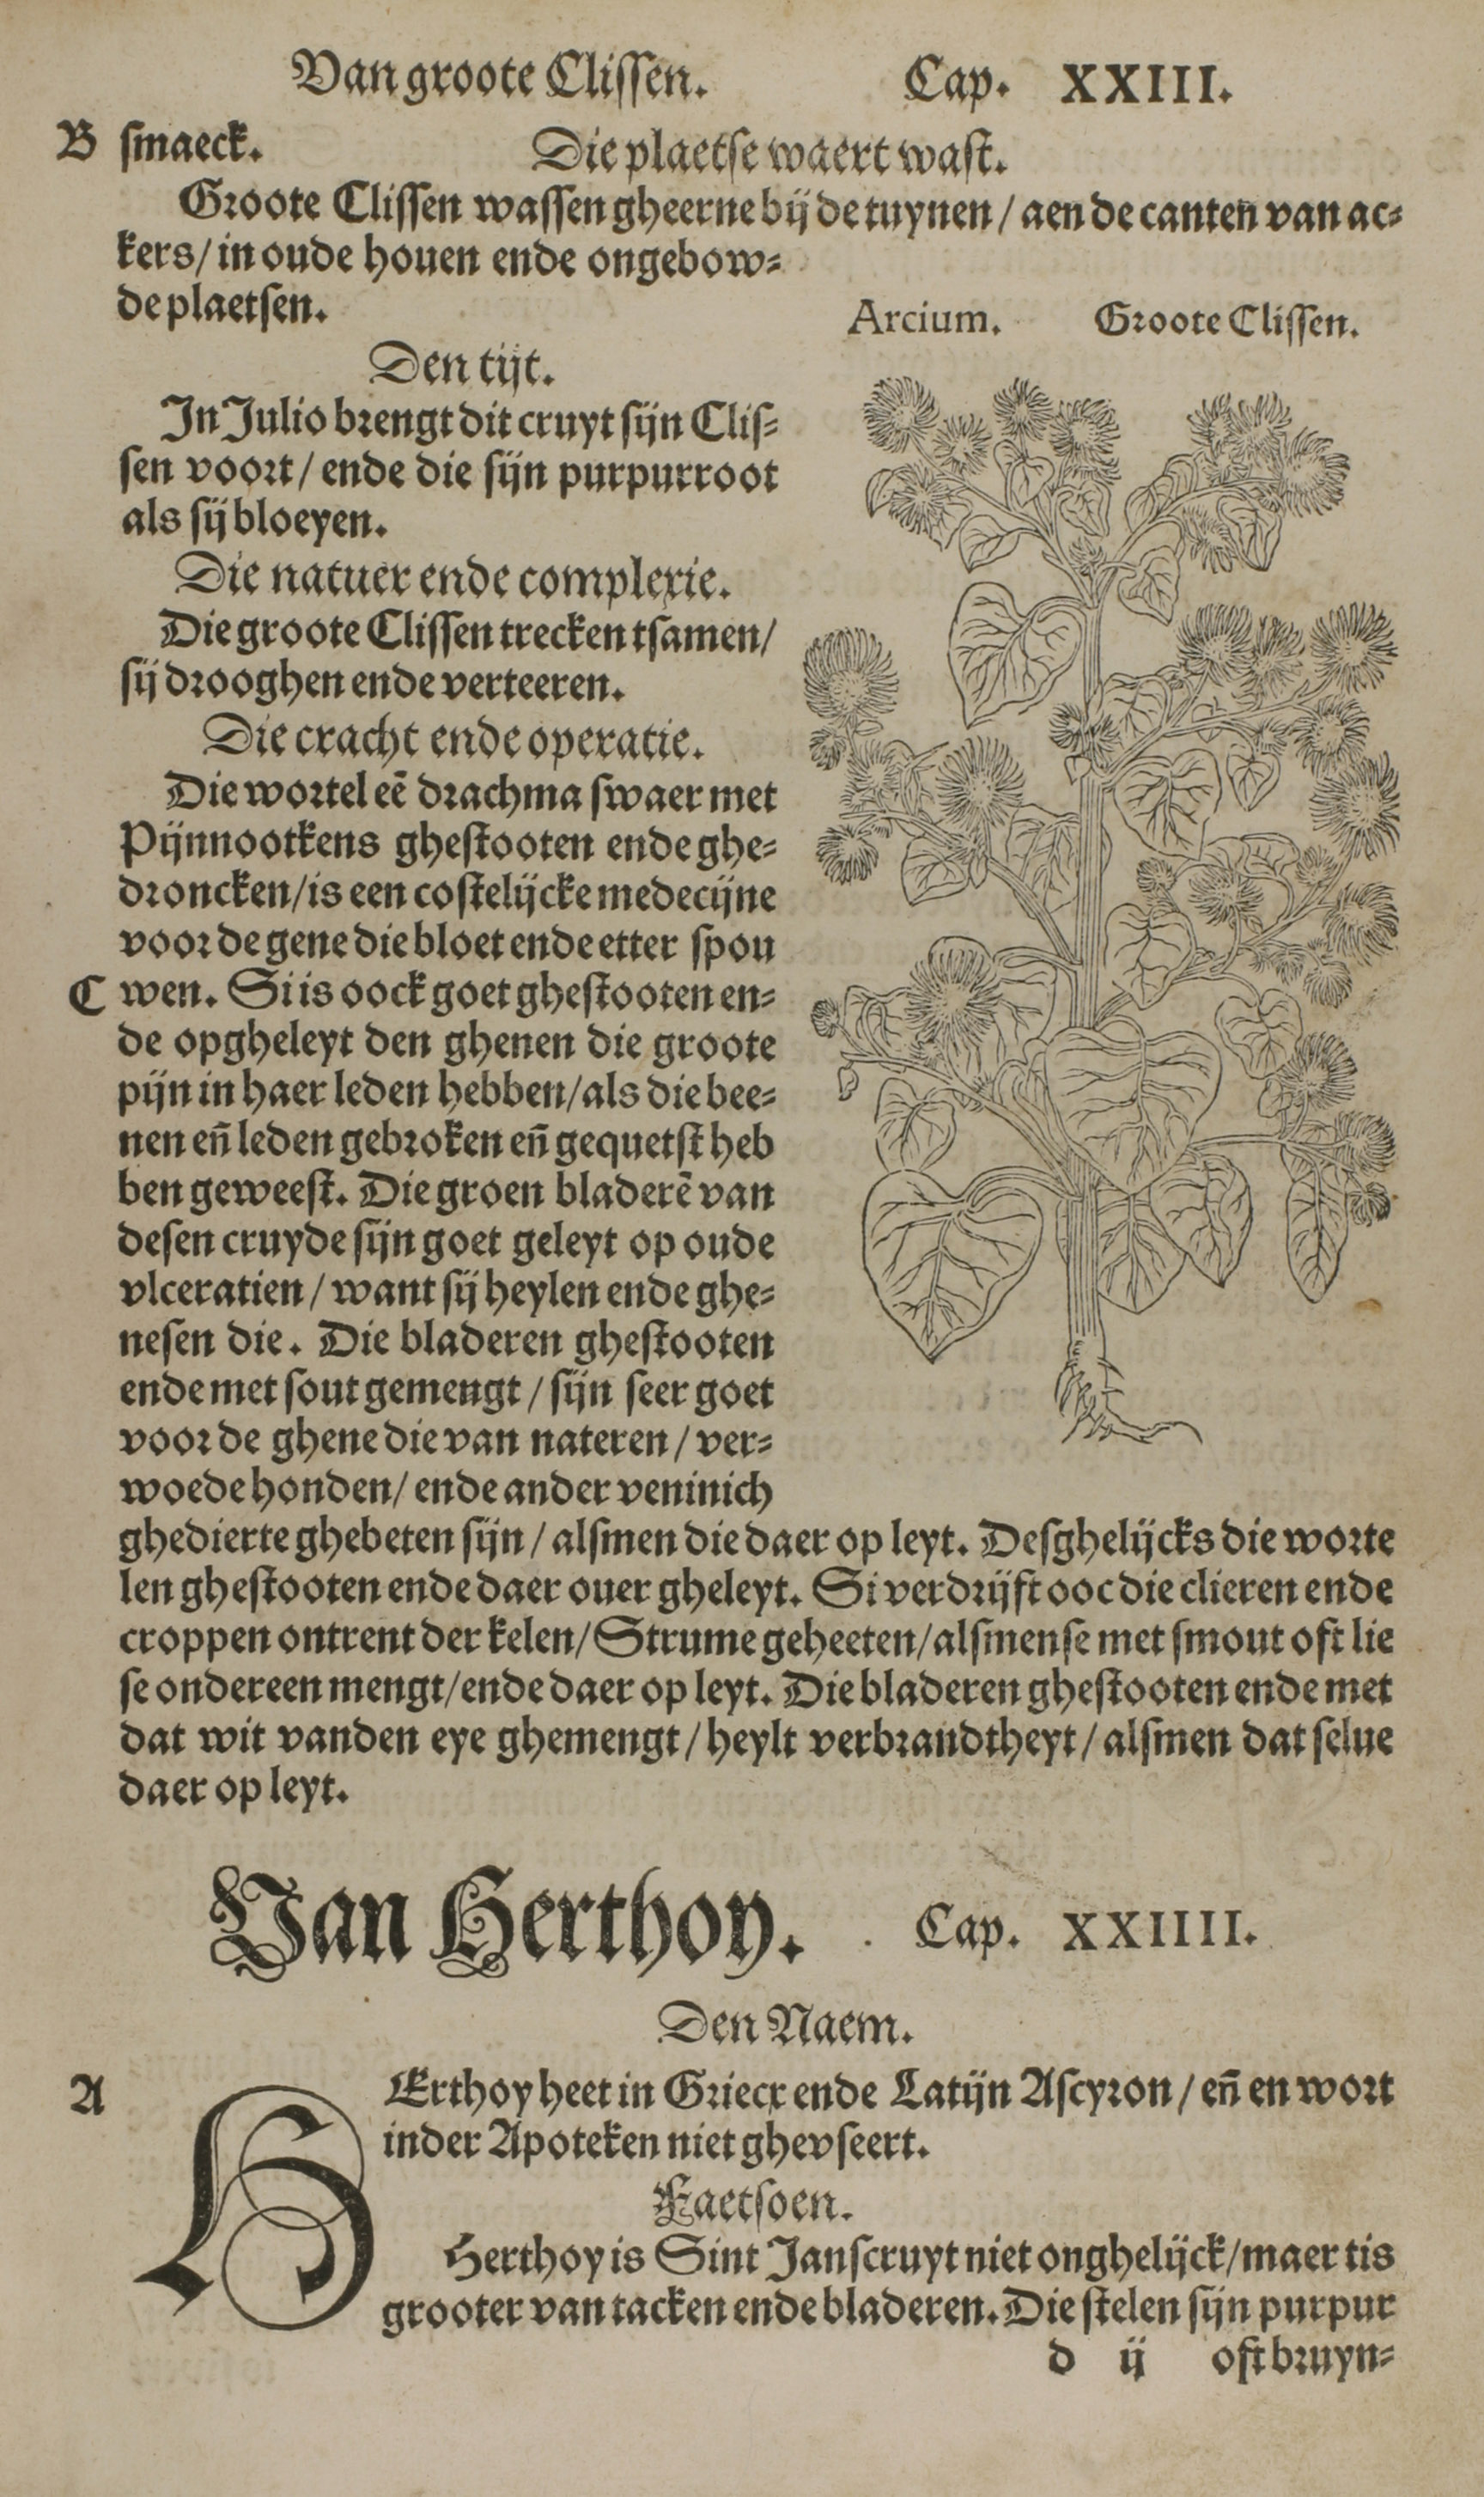 Van groote Clissen. Cap. XXIII.
B smaeck. Die plaetse waert wast.
Groote Clissen wassen gheerne bij de tuynen / aen de canten van ac⸗
kers/ in oude houen ende ongebow⸗
de plaetsen.
Arcium. Groote Clissen.
Den tijt.
In Julio brengt dit cruyt sijn Clis⸗
sen voort / ende die sijn purpurroot
als sij bloeyen.
Die natuer ende complexie.
Die groote Clissen trecken tsamen/
sij drooghen ende verteeren.
Die cracht ende operatie.
Die wortel eē drachma swaer met
Pijnnootkens ghestooten ende ghe⸗
droncken/is een costelijcke medecijne
voor de gene die bloet ende etter spou
C wen. Si is oock goet ghestooten en⸗
de opgheleyt den ghenen die groote
pijn in haer leden hebben/als die bee⸗
nen eñ leden gebroken eñ gequetst heb
ben geweest. Die groen bladerē van
desen cruyde sijn goet geleyt op oude
vlceratien / want sij heylen ende ghe⸗
nesen die. Die bladeren ghestooten
ende met sout gemengt / sijn seer goet
voor de ghene die van nateren / ver⸗
woede honden/ ende ander veninich
ghedierte ghebeten sijn / alsmen die daer op leyt. Desghelijcks die worte
len ghestooten ende daer ouer gheleyt. Si verdrijft ooc die clieren ende
croppen ontrent der kelen/ Strume geheeten/alsmense met smout oft lie
se ondereen mengt/ende daer op leyt. Die bladeren ghestooten ende met
dat wit vanden eye ghemengt / heylt verbrandtheyt / alsmen dat selue
daer op leyt.
Van Herthoy. Cap. XXIIII.
Den Naem.
A HErthoy heet in Griecx ende Latijn Ascyron / eñ en wort
inder Apoteken niet ghevseert.
Faetsoen.
Herthoy is Sint Janscruyt niet onghelijck/maer tis
grooter van tacken ende bladeren. Die stelen sijn purpur
d ij oft bruyn⸗